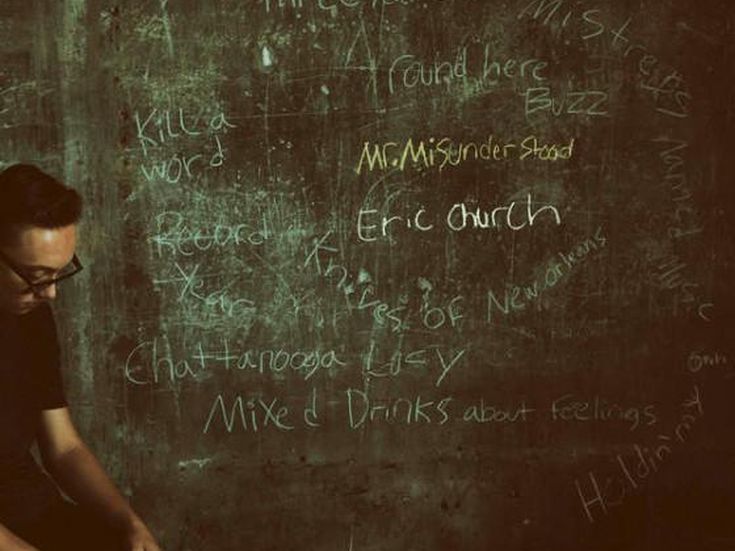 Mistress Named Music
round here
Buzz
Kill a
word
Mr. Misunderstood
Record
Year
Eric Church
Knives of New Orleans
Chattanooga Lucy
Mixed Drinks about Feelings
Holdin' m